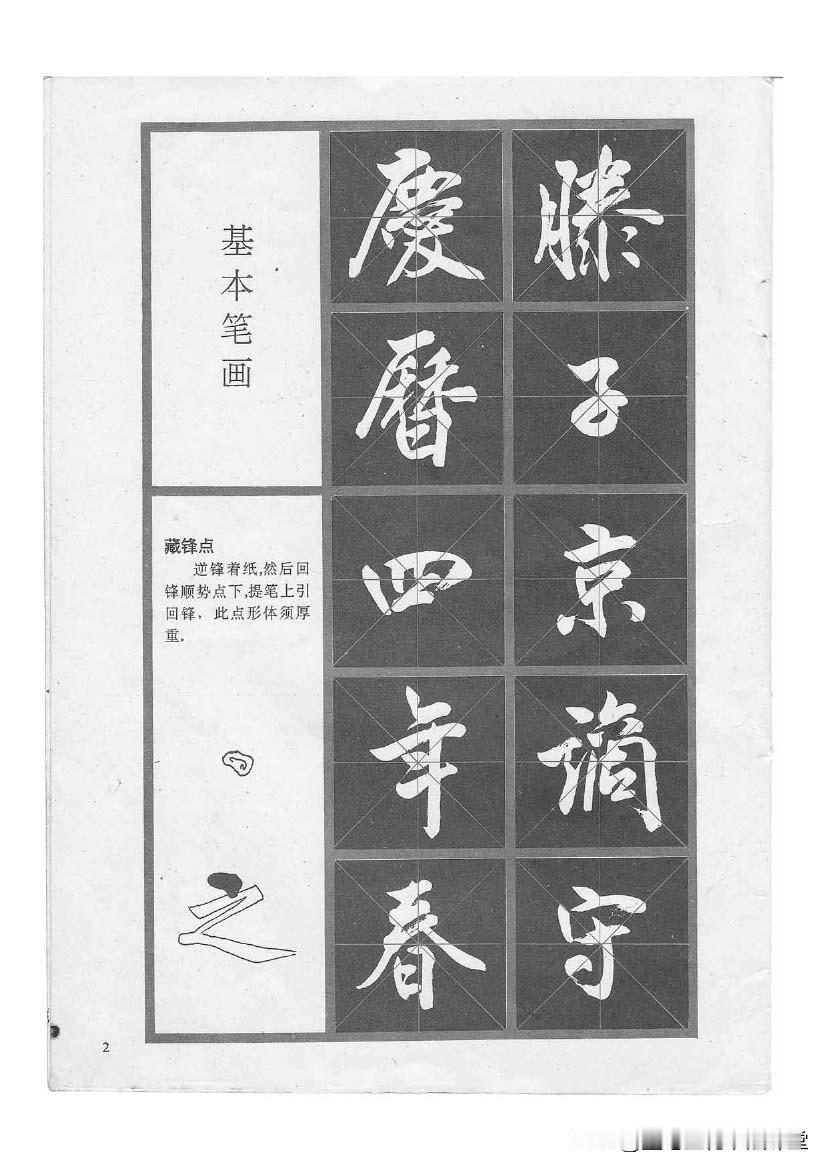 基本笔画
藏锋点
逆锋着纸,然后回
锋顺势点下,提笔上引
回锋，此点形体须厚
重。
之
慶曆四年春
滕子京謫守
2